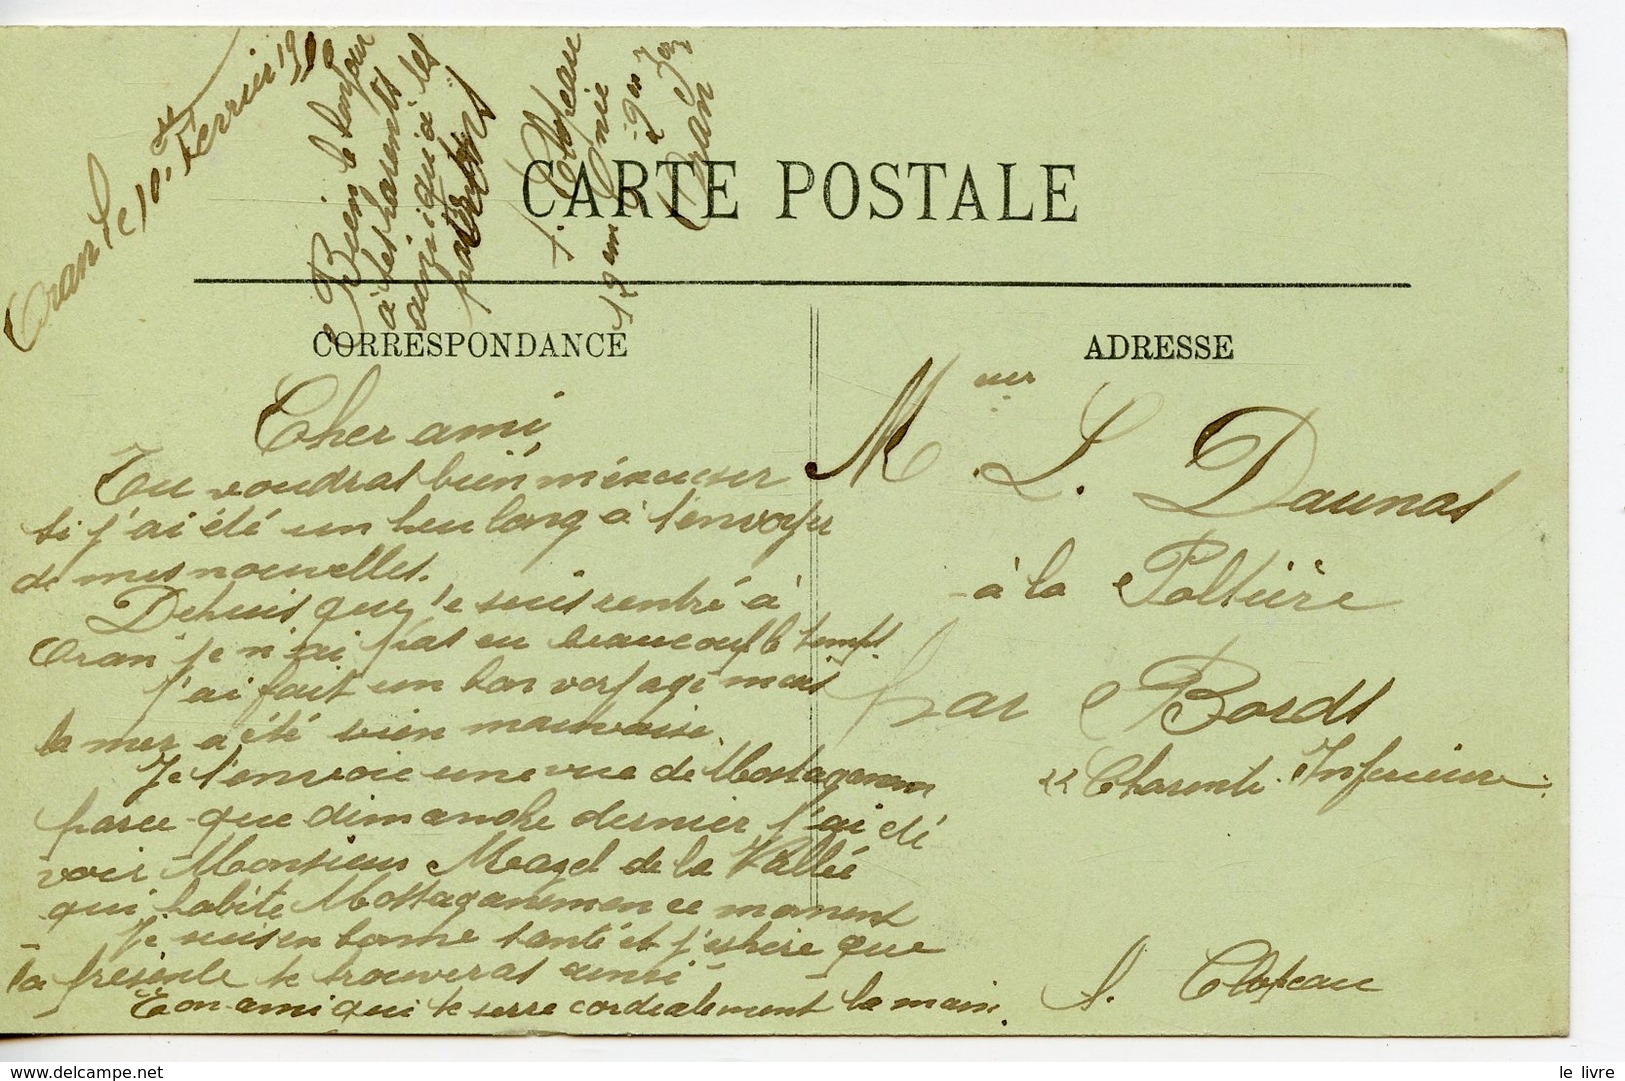 Oran le 10 Février 1910
Bien le bonjour
à tes parents
amis qu'à les
CARTE POSTALE
19em
Oran
CORRESPONDANCE
ADRESSE
Cher ami,
Tu voudras bien m'éxcuser
si j'ai été un peu long à t'envoyer
de mes nouvelles.
Depuis que je suis rentré à
Oran je n'ai pas eu beaucoup le temps
j'ai fait un bon voyage mais
la mer a été bien mauvaise.
Je t'envoie une vue de Mostaganem
parce-que dimanche dernier j'ai été
voir Monsieur Mazel de la Vallée
qui habite Mostaganem en ce moment
Je suis en bonne santé et j'espère que
la présente te trouveras ainsi
Ton ami qui te serre cordialement la main.
Mr L. Daunas
à la
par Bords
Charente Inférieure